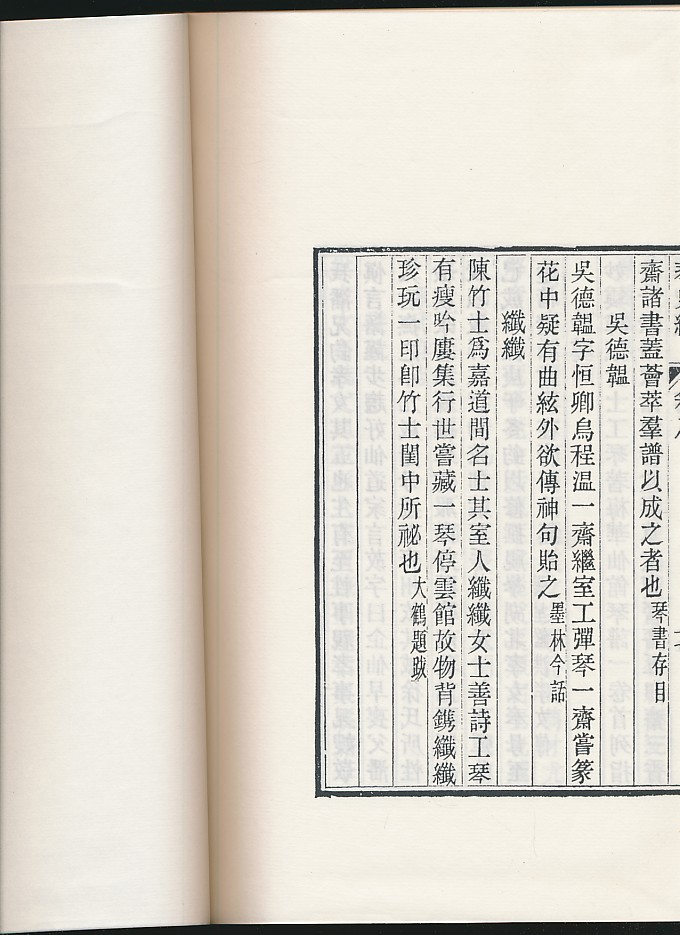 齋諸書蓋薈萃羣譜以成之者也琴書存目
吳德韞
吳德韞字恒卿烏程温一齋繼室工彈琴一齋嘗篆
花中疑有曲絃外欲傳神句貽之墨林今話
纖纖
陳竹士爲嘉道間名士其室人纖纖女士善詩工琴
有瘦吟廔集行世嘗藏一琴停雲館故物背鐫纖纖
珍玩一印卽竹士閨中所祕也大鶴題跋